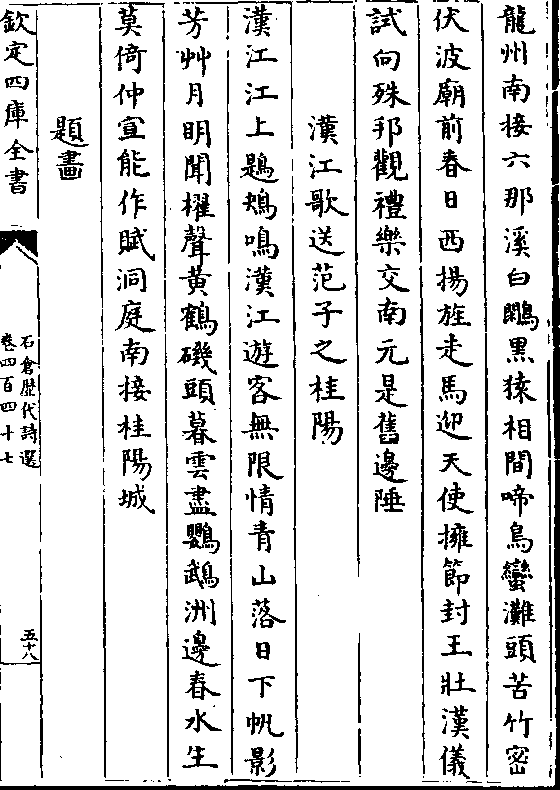 龍州南接六那溪白鷴黒猿相間啼烏蠻灘頭苦竹密
伏波廟前春日西揚旌走馬迎天使擁節封王壯漢儀
試向殊邦觀禮樂交南元是舊邊陲
漢江歌送范子之桂陽
漢江江上鶗鴂鳴漢江遊客無限情青山落日下帆影
芳艸月明聞櫂聲黄鶴磯頭暮雲盡鸚鵡洲邊春水生
莫倚仲宣能作賦洞庭南接桂陽城
題畫
欽定四庫全書
石倉歴代詩選
卷四百四十七
五十八